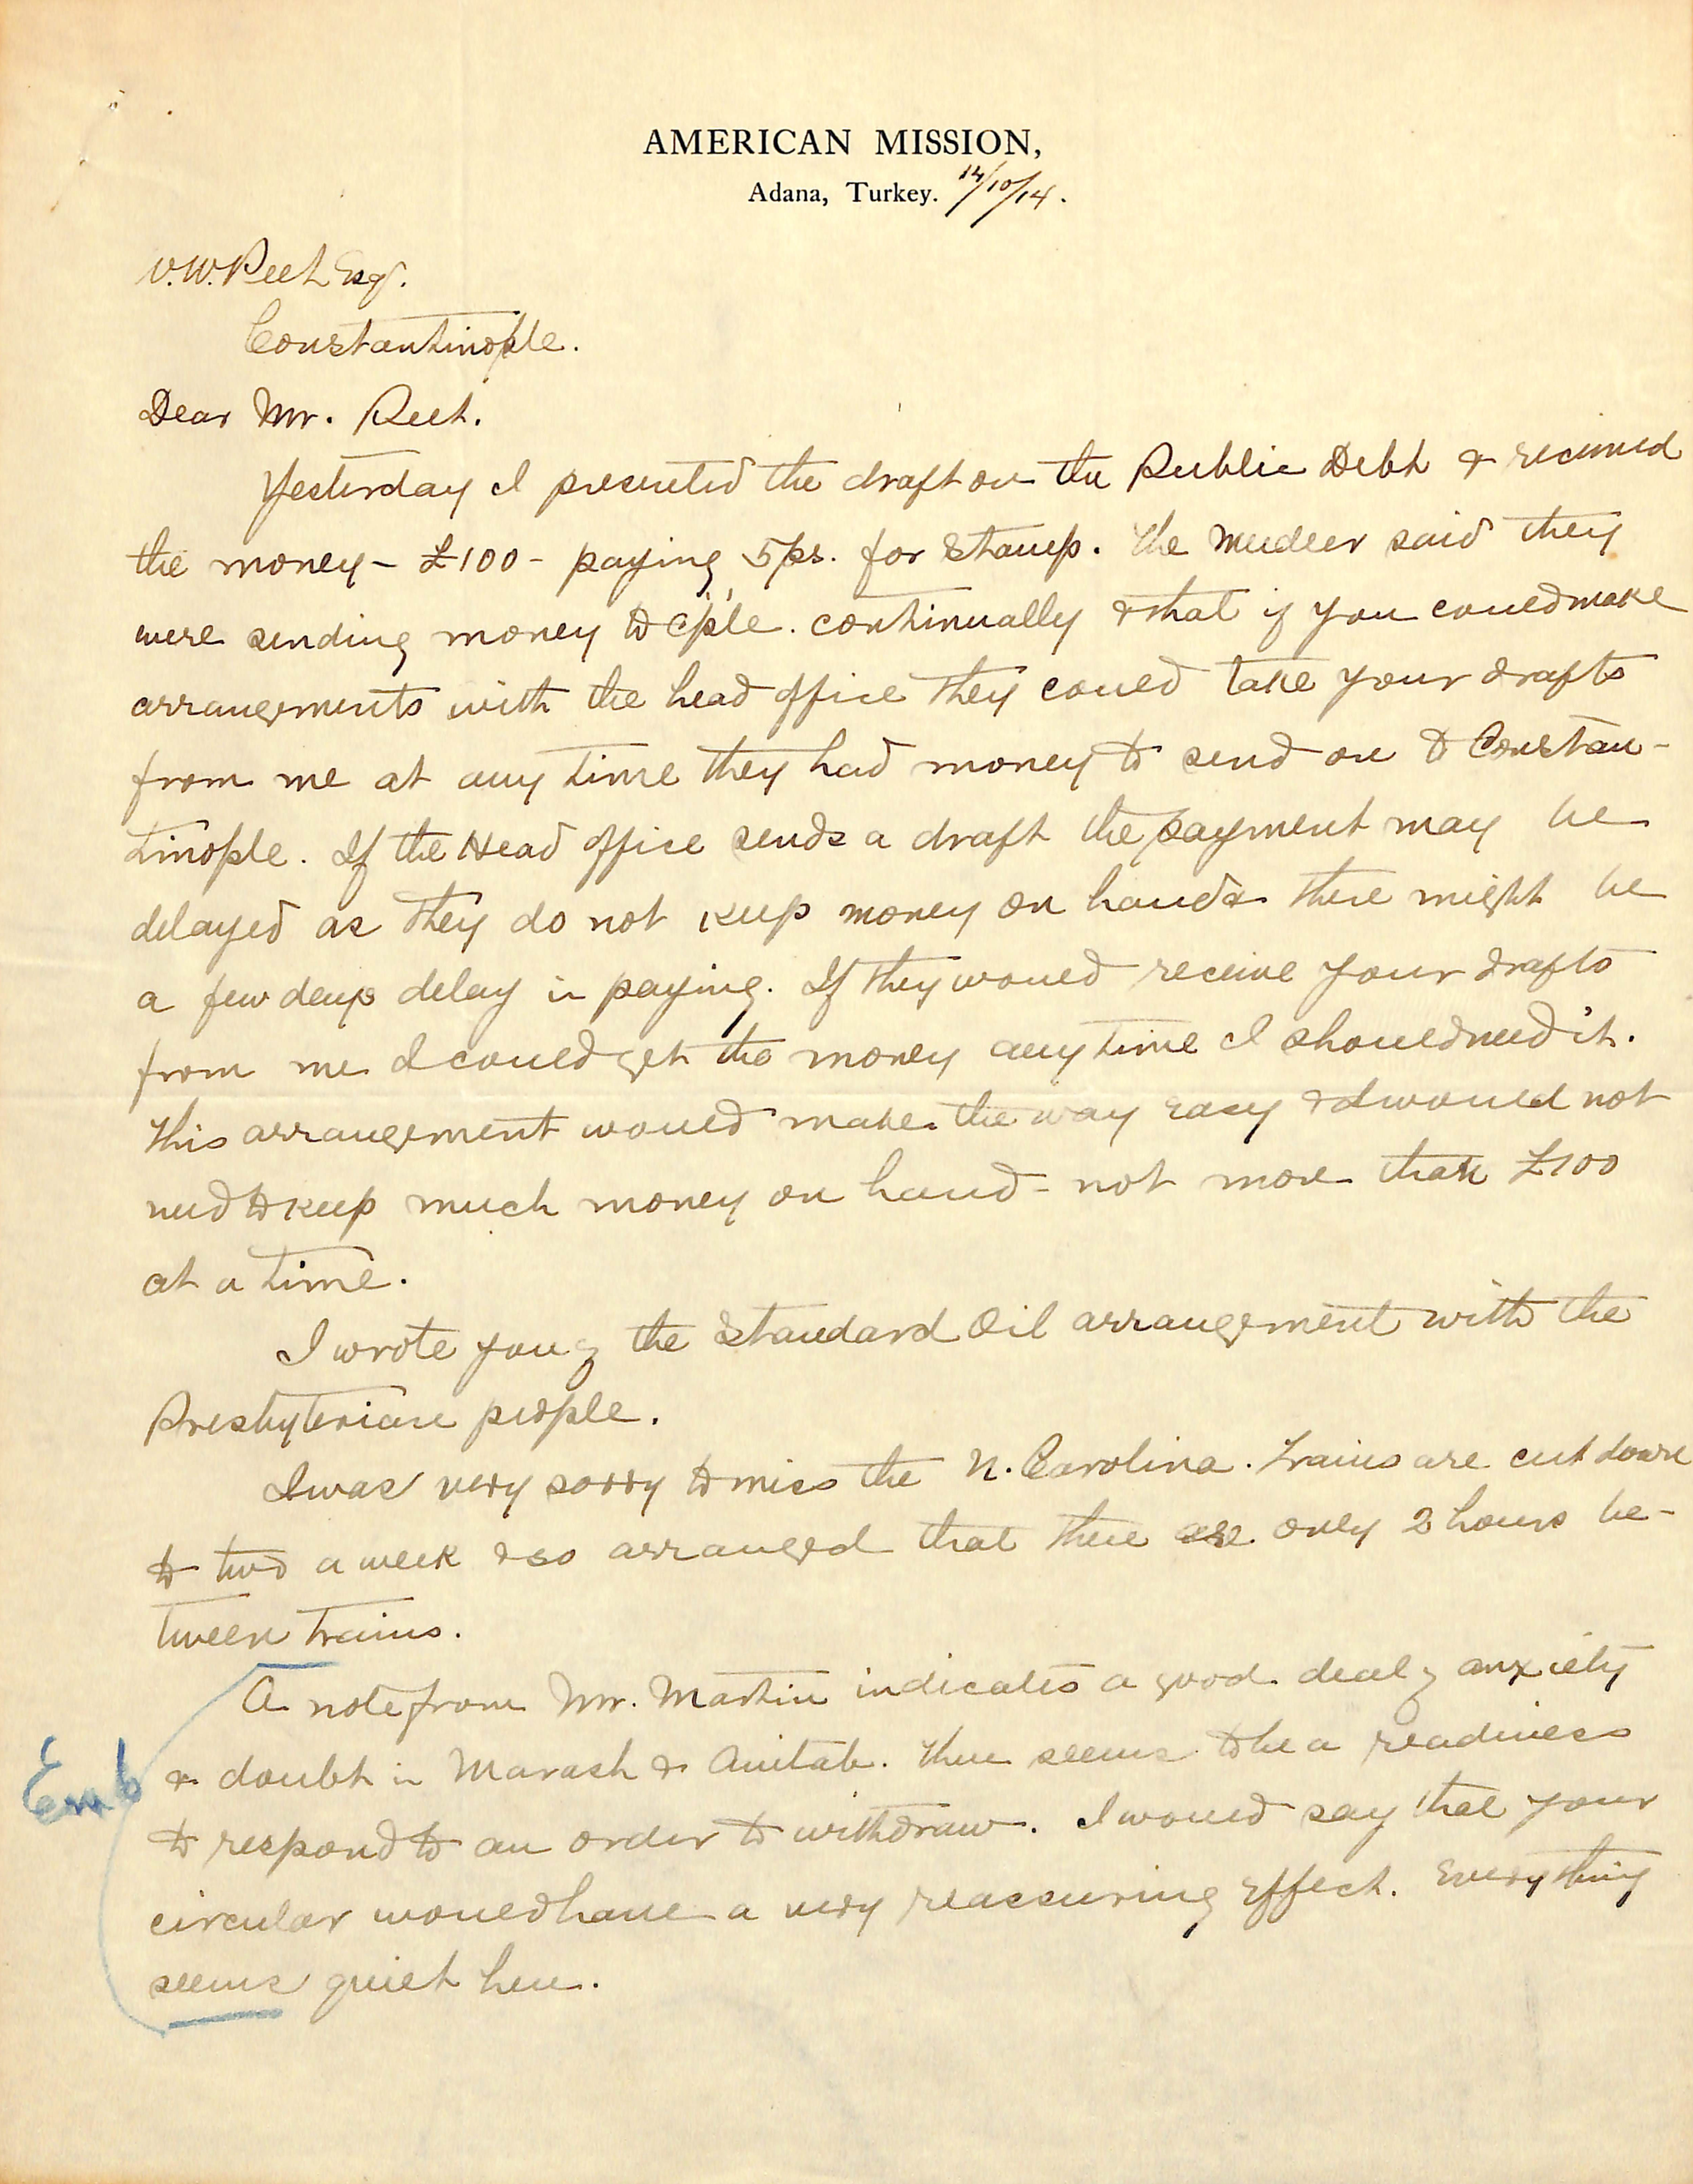 AMERICAN MISSION,
Adana, Turkey. 14/10/14.
W. W. Peet Esq.
Constantinople.
Dear Mr. Peet.
Yesterday I presented the draft on the Public Debt & received
the money - £100 - paying 5ps. for stamp. The Mudeer said they
were sending money to C'ple. continually & that if you could make
arrangements with the head office they could take your drafts
from me at any time they had money to send on to Constan-
tinople. If the Head office sends a draft the payment may be
delayed as they do not keep money on hand & there might be
a few days delay in paying. If they would receive your drafts
from me I could get the money any time I should need it.
This arrangement would make the way easy & I would not
need to keep much money on hand - not more than £100
at a time.
I wrote you of the Standard Oil arrangement with the
Presbyterian people.
I was very sorry to miss the N. Carolina. Trains are cut down
to two a week & so arranged that there are only 2 hours be-
tween trains.
A note from Mr. Martin indicates a good deal of anxiety
& doubt in Marash & Aintab. There seems to be a readiness
to respond to an order to withdraw. I would say that your
circular would have a very reassuring effect. Everything
seems quiet here.
Emb